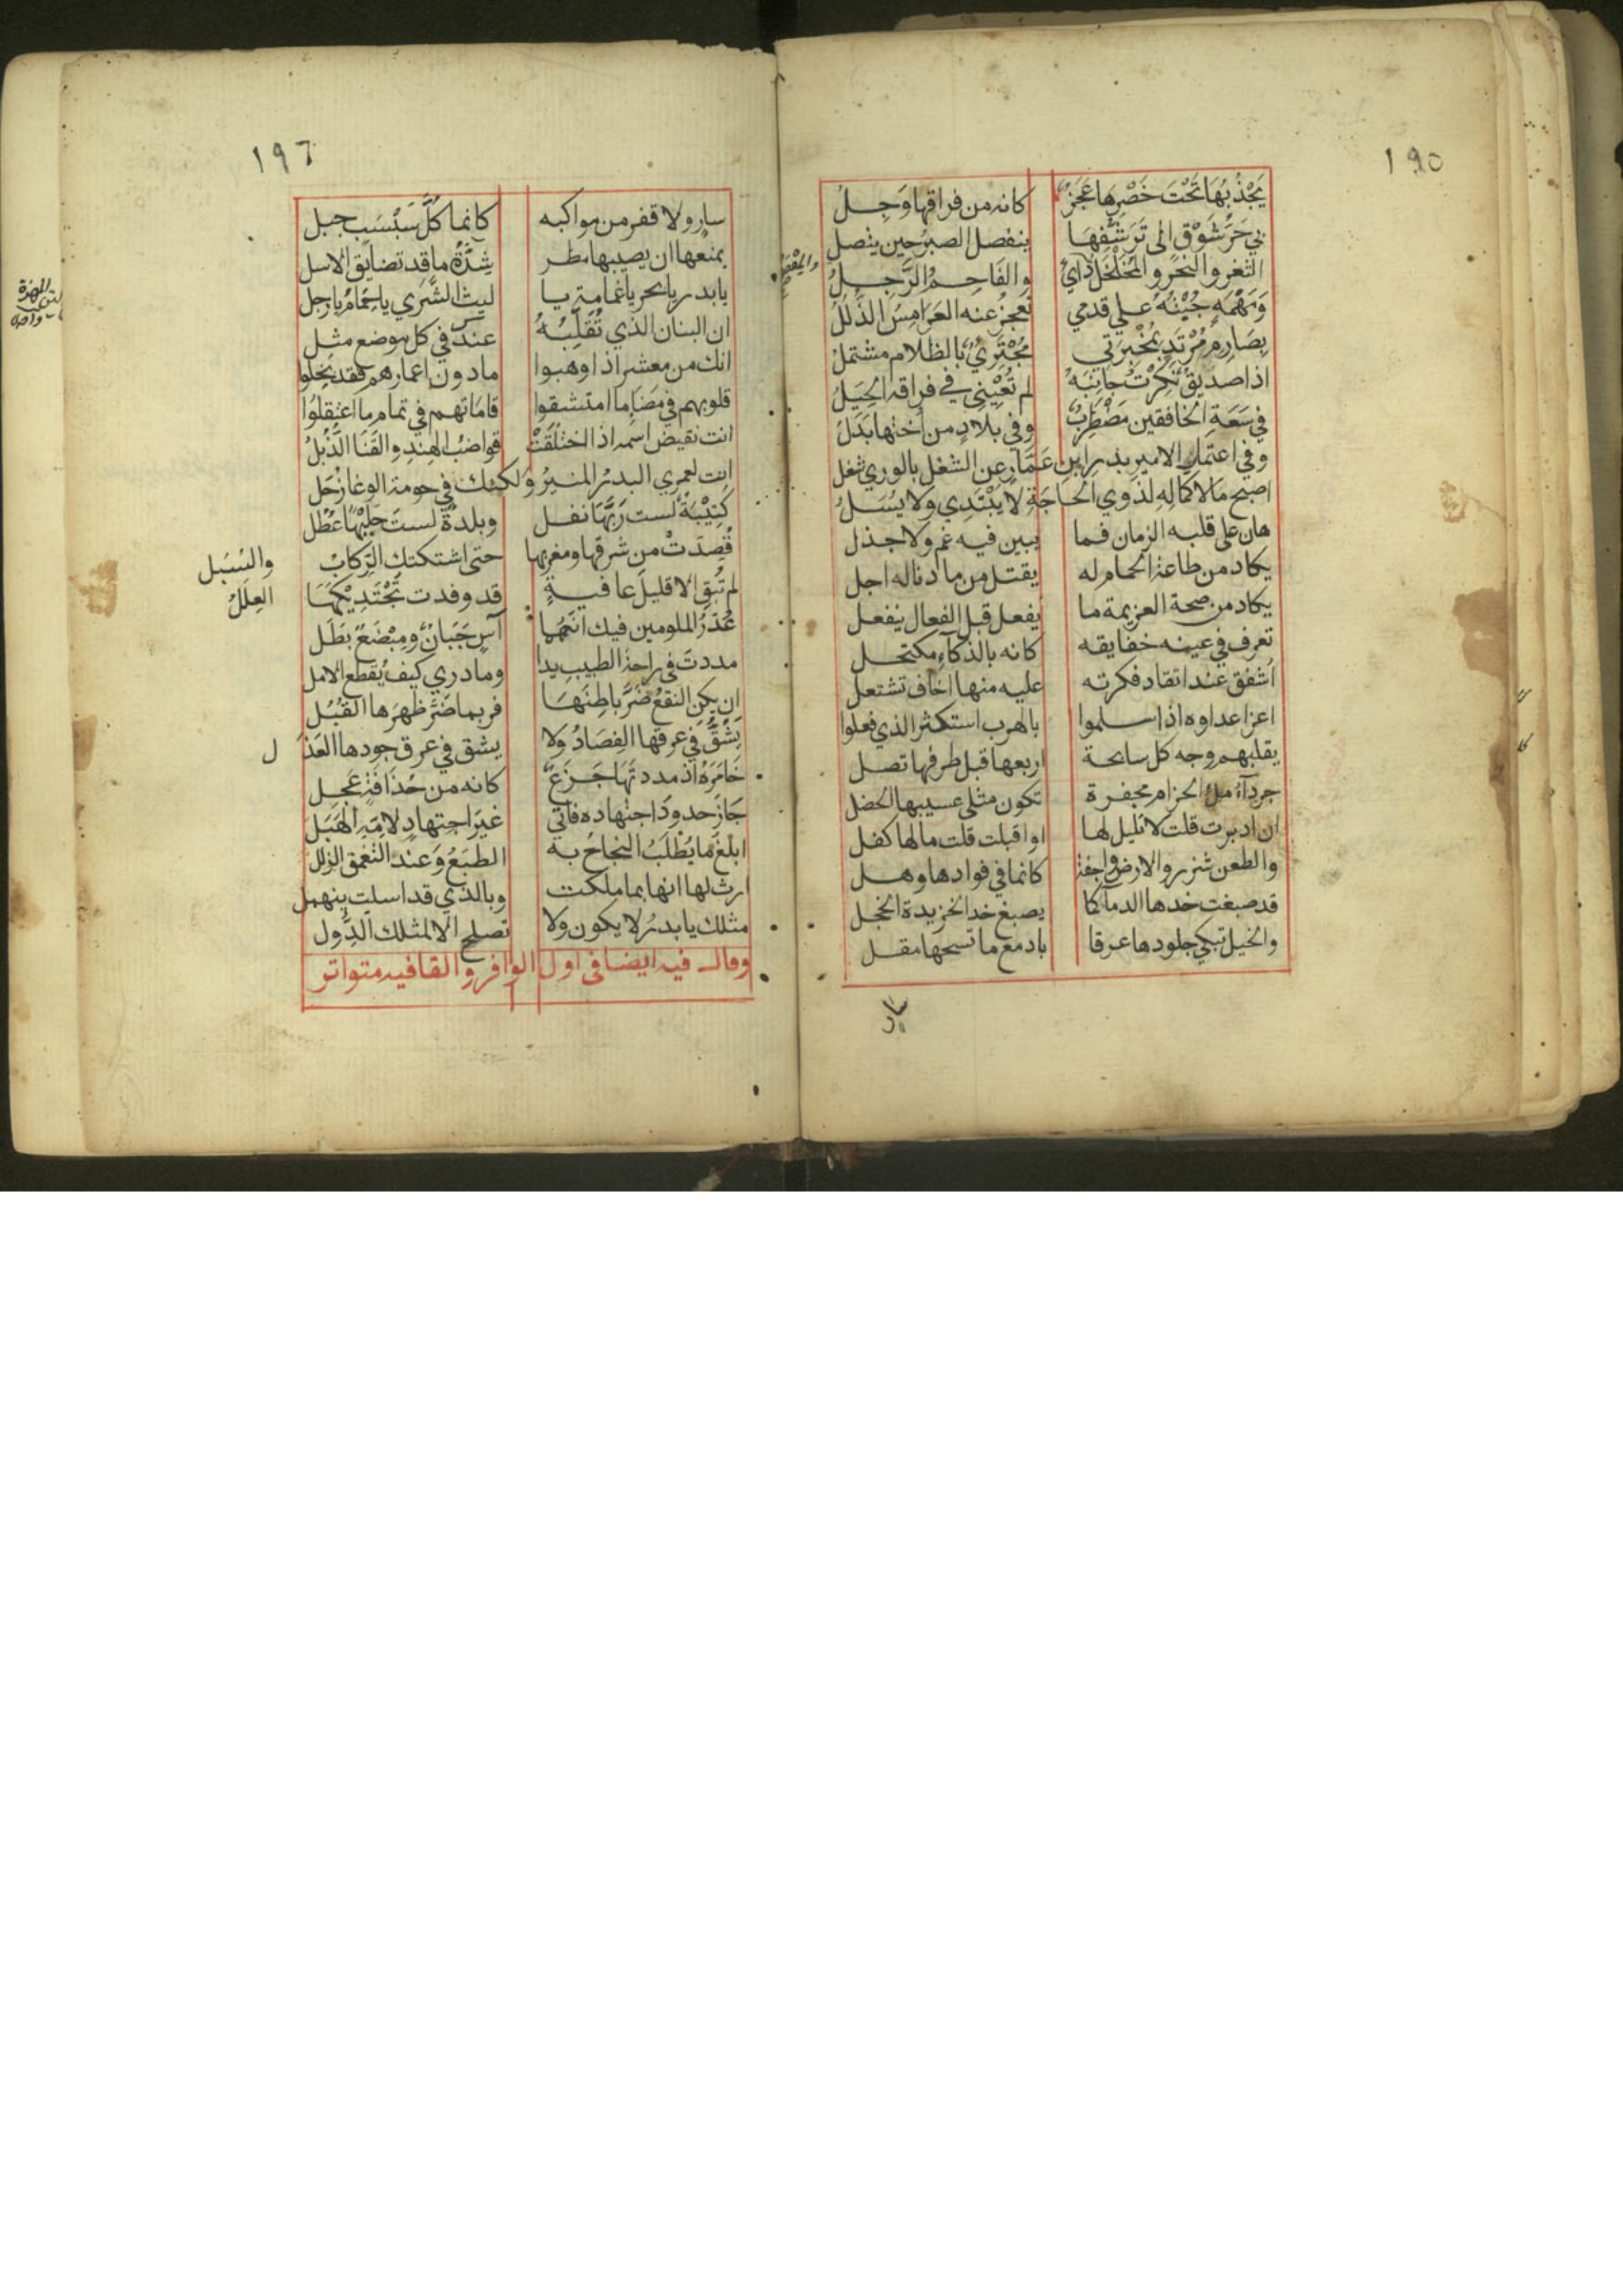 ١٩٥
يَجْذُبُهَا تَحْتَ خَصْرِهَا عَجَزٌ كانه من فراقها وَجِلُ
بي حَرُّ شَوْقٍ الى تَرَشُّفِهَا ينفصل الصبرُ حين يتصل
الثغر والنحر والمُخَلْخَلُ دَائي والفَاحِمُ الرَّجِلُ
والمِعْصَمُ
وَمَهْمَهٍ جُبْتُهُ علي قدمي تَعجِزُ عنه العَرَامِسُ الذُّلُلُ
بِصَارِمٍ مُرْتَدٍ بمُخْبِرَتي مُجْتَزِيٌ بالظلام مشتملُ
اذا صديقٌ نَكِرْتُ جَانِبَهُ لم تُعْيِنِي في فراقه الحِيَلُ
في سَعَةِ الخافقين مَضْطَرَبٌ وفي بلادٍ من أختها بَدَلُ
وفي اعتمار الامير بدر ابن عَمَّارٍ عن الشغل بالوري شغل
اصبح مالا كماله لذوي الحاجَةِ لا يَبْتَدِي ولا يُسَلُ
هان على قلبه الزمان فما يبين فيه غم ولا جذل
يكاد من طاعة الحمام له يقتل من ما دنا له اجل
يكاد من صحة العزيمة ما يفعل قبل الفعال ينفعل
تعرف في عينه حقايقه كانه بالذكاء مكتحل
اُشفق عند اتقاد فكرته عليه منها اخاف تشتعل
اعز اعداوه اذا سلموا بالهرب استكثر الذي فعلوا
يقلبهم وجه كل سابحة اربعها قبل طرفها تصل
جرداء ملء الحزام مجفرة تكون مثلي عسيبها الخصل
ان ادبرت قلت لا تليل لها او اقبلت قلت ما لها كفل
والطعن شزر والارض واجفة كانما في فوادها وهل
قد صبغت خدها الدماء كما يصبغ خد الخريدة الخجل
والخيل تبكي جلودها عرقا بادمع ما تسحها مقل
سار
١٩٦
سار ولا قفر من مواكبه كانما كُلُّ سَبْسَبٍ جبل
يمنعها ان يصيبها مطر شِدَّةُ ما قد تضايق الاسل
يا بدر يا بحر يا غمامة يا ليث الشَّرَي يا حِمَامُ يا رجل
ان البنان الذي تُقَلِّبُهُ عندك في كل موضع مثل
انك من معشر اذا وهبوا ما دون اعمارهم فقد بَخِلوا
قلوبهم في مَضَاءِ ما امتشقوا قاماتهم في تمام ما اعْتَقلوُا
انت نقيض اسمه اذا اختلفَتْ قواضبُ الهِنِد والقَنَا الذُّبلُ
انت لعمري البدرُ المنيرُ ولكنك في حومة الوغا زُحَل
كَتِيْبَةٌ لست رَبَّهَا نفل وبلدةٌ لستَ حَلْيَهَا عُطُل
قُصِدَتْ من شرقها ومغربها حتى اشتكتك الرِّكابُ
والسُبَل
لم تُبق الا قليلَ عافيةٍ قد وفدت تَجْتَدِيْكَهَا
العِلَلُ
عُذْرُ الملومين فيك انَّهما آسٍ جَبَانٌ ومِبْضَعٌ بَطَل
مددتَ في راحة الطبيب يدا وما دري كيف يُقطع الامل
ان يكن النقعُ ضَرَّ باطِنَهَا فربما ضَرَّ ظهرها القُبَل
يَشُقُّ في عرقها الفِصَادُ ولا يشق في عرق جودها العَذَل
خَامَرَهُ اذ مددتَهَا جَزَعٌ كانه من حُذَاقَةٍ عَجِل
جَازَ حدودَ اجتهاده فاتي غيرَ اجتهادٍ لامِّهِ الهَبَل
ابلَغُ ما يُطْلَبُ النجاحُ به الطبعُ وَعند التعمق الزلل
ارثِ لها انها بما ملكت وبالذي قد اسلت ينهمل
مثلك يا بدرُ لا يكون ولا تصلح الا لمثلك الدُّول
وقال فيه ايضا في اول الوافر والقافيه متواتر